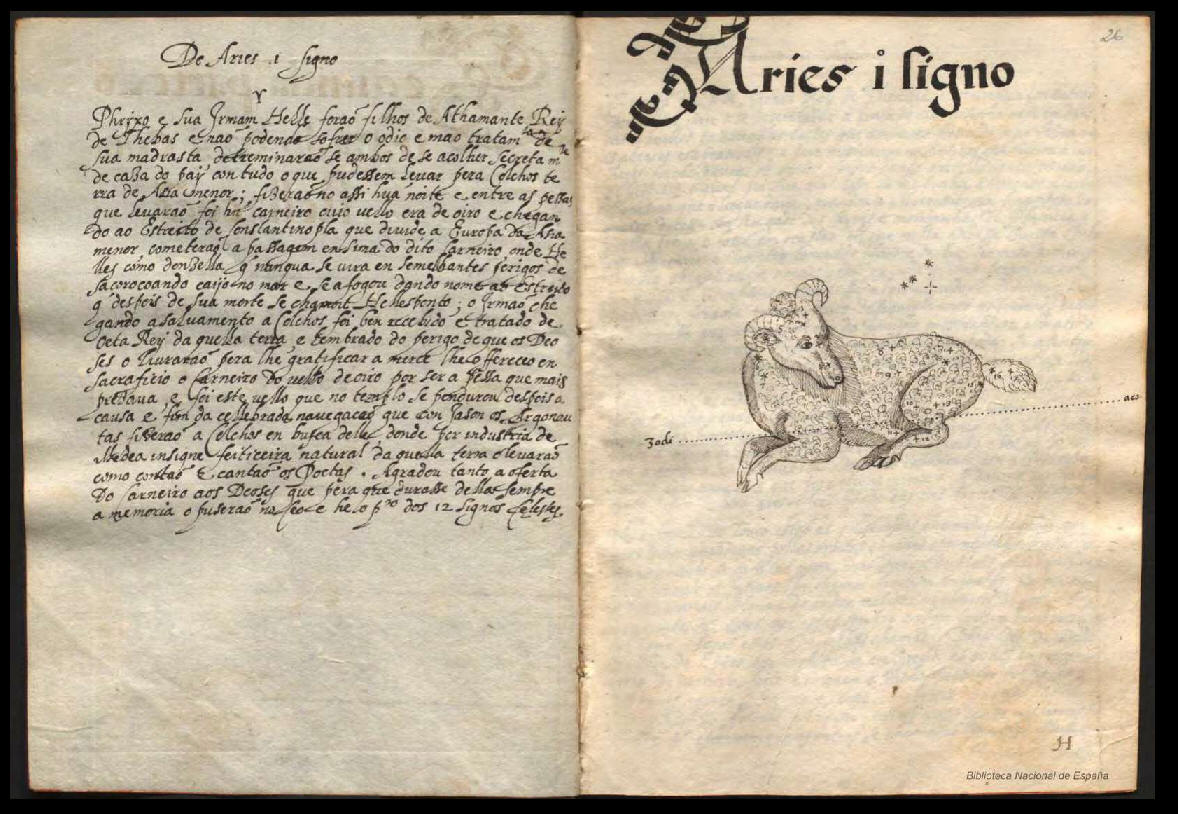 De Aries 1 signo
Phrixo e sua Irmam Helle foraõ filhos de Athamante Rey
de Thebas e naõ podendo sofrer o odio e mao tratam.to de
sua madrasta detreminaraõ se ambos de se acolher secretam.te
de caza do pay con tudo o que pudessem levar pera Colchos te
rra de Asia menor; fizeraõno assi hũa noite e entre as pessas
que levaraõ foi hũ carneiro cuio vello era de oiro e chegan
do ao Estreito de Constantinopla que divide a Europa da Asia
menor cometeraõ a passagem en sima do dito Carneiro onde He
lles como donzella q̃ nunqua se vira en semelhantes perigos de
sacorocoando caijo no mar e se afogou dando nome ao Estreito
q̃ despois de sua morte se chamou Hellesponto; o Irmaõ che
gando a salvamento a Colchos foi ben recebido e tratado de
Oeta Rey da quella terra e lembrado do perigo de que os Deo
ses o livraraõ pera lhe gratificar a merce lhe offereceo en
sacrafitio o Carneiro do vello de oiro por ser a pessa que mais
prezava e foi este vello que no templo se pendurou despois a
causa e fim da cellebrada navegaçaõ que con Jason os Argonau
tas fizeraõ a Colchos en busca delle donde por industria de
Medea insigne feiticeira natural da quella terra o levaraõ
como contaõ e cantaõ os Poetas. Agradou tanto a oferta
do Carneiro aos Deoses que pera que durasse della sempre
a memoria o puseraõ no Ceo e he o pr.o dos 12 signos celestes.
26
Aries i signo
Zodi
aco
H
Biblioteca Nacional de España